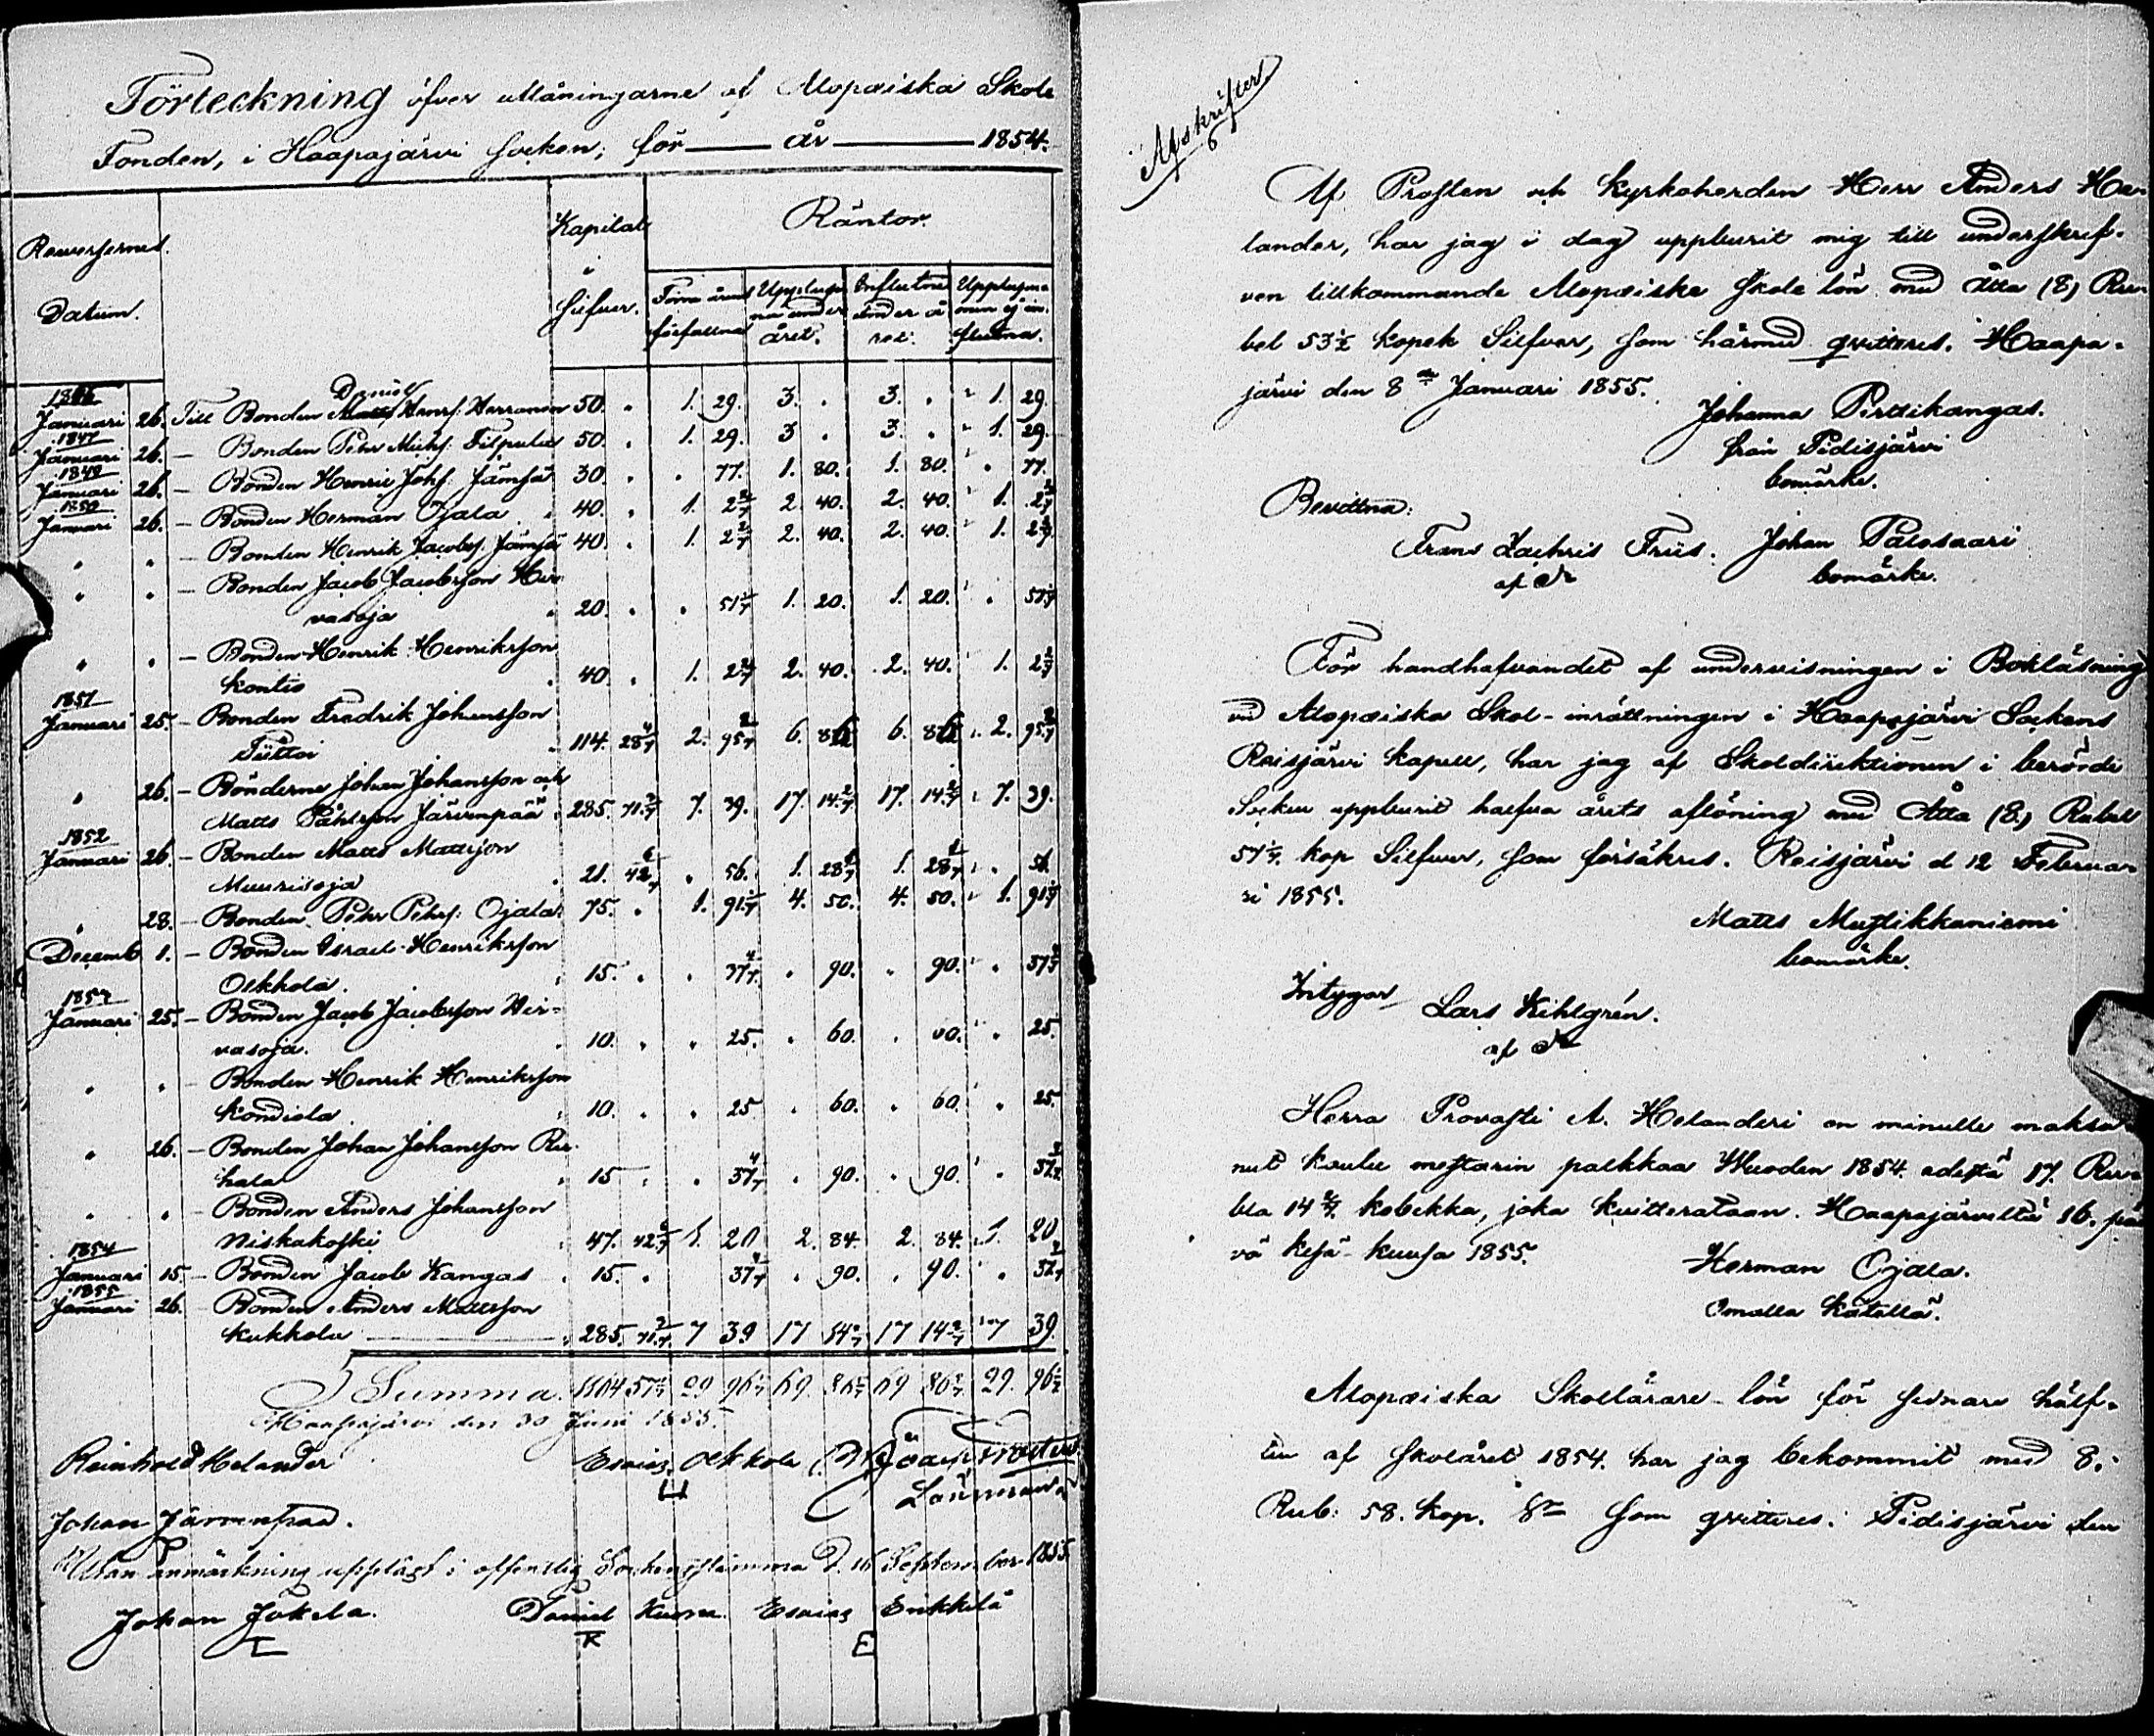 Förteckning öfver utlåningarne af Alopæiska Skole
Fonden, i Haapajärvi Socken, för — år — 1854.
Reversernes Datum.
Kapital i Silfver.
Räntor.
Förra året förfallna
Upplupna under året.
Influtna under året.
Upplupna men ej influtna.
Januari 26. Till Bonden Daniel Henrs: Herranen 50. " 1. 29. 3. " 3. " " 1. 29.
1847
Januari 26. — Bonden Pehr Michs: Filpula 50. " 1. 29. 3 " 3. " " 1. 29.
1849
Januari 26. — Bonden Henric Johs: Jämsä 30. " " 77. 1. 80. 1. 80. " 77.
1850
Januari 26. — Bonden Herman Ojala " 40. " 1. 2 6/7 2. 40. 2. 40. " 1. 2 6/7
" " — Bonden Henrik Jacobs: Jämsä 40. " 1. 2 6/7 2. 40. 2. 40. 1. 2 6/7
" " — Bonden Jacob Jacobsson Hir-
vasoja " 20. " " 51 3/7 1. 20. 1. 20. " " 51 3/7
" " — Bonden Henrik Henriksson
Kontio " 40. " 1. 2 6/7 2. 40. 2. 40. " 1. 2 6/7
1851
Januari 25. — Bonden Fredrik Johansson
Tiittoi " 114. 28 4/7 2. 95 2/7 6. 86 6. 86 " 2. 95 2/7
" 26. — Bönderne Johan Johansson och
Matts Påhlsson Järvenpää " 285. 71 3/7 7. 39. 17. 14 2/7 17. 14 2/7 " 7. 39.
1852
Januari 26. — Bonden Matts Mattsson
Muurisoja " 21. 42 6/7 " 56. 1. 28 4/7 1. 28 4/7 " " 56.
" 28. — Bonden Pehr Pehrs: Ojala " 75. " 1. 91 4. 50. 4. 50. " 1. 91
Decemb 1. — Bonden Israel Henriksson
Olkkola. " 15. " " 37 4/7 " 90. " 90. " " 37
Januari 25. — Bonden Jacob Jacobsson Hir-
vasoja. " 10. " " 25. " 60. " 60. " " 25.
" " — Bonden Henrik Henriksson
Kondiola " 10. " " 25 " 60. " 60. " 25.
" 26. — Bonden Johan Johansson Ru-
hala " 15 " " 37 4/7 " 90. " 90. " " 37
" " — Bonden Anders Johansson
Niskakoski " 47. 42 6/7 1. 20 2. 84. 2. 84. " 1. 20
1854
Januari 15. — Bonden Jacob Kangas " 15. " 37 4/7 " 90. " 90. " " 37
1855
Januari 26. — Bonden Anders Mattsson
Kukkola — " 285. 71 3/7 7 39 17 14 2/7 17 14 2/7 " 7 39.
Summa. 1164 57 1/7 29 96 69. 86 69 86 29. 96
Haapajärvi den 30 Juni 1855.
Reinhold Helander Esaias Olkkola
Johan Järvenpää. Länsman
Utan anmärkning uppläst i offentlig Sockenstämma d. 16 September 1855
Johan Jokela. Daniel Kuona. Esaias Erikkilä
K E
Afskrifter
Af Prosten och Kyrkoherden Herr Anders He-
lander, har jag i dag uppburit mig till underskref-
ven tillkommande Alopæiska Skole lön med Åtta (8) Ru-
bel 53 1/2 kopek Silfver, som härmed qvitteras. Haapa-
järvi den 8de Januari 1855.
Johanna Perttikangas.
från Pidisjärvi
bomärke.
Bevittna:
Frans Zachris Friis. Johan Palosaari
bomärke.
För handhafvandet af undervisningen i Bokläsning
vid Alopæiska Skol-inrättningen i Haapajärvi Sockens
Reisjärvi Kapell, har jag af Skoldirektionen i berörde
Socken uppburit halfva årets aflöning med Åtta (8.) Rubel
57 1/7 kop Silfver, som försäkras. Reisjärvi d 12 Februa-
ri 1855.
Matts Mustikkaniemi
bomärke.
Intygar Lars Kihlgrén.
Herra Provasti A. Helanderi on minulle maksa-
nut koulu mestarin palkkaa Vuoden 1854 edestä 17. Ru-
bla 14 2/7 kobekka, joka kvitterataan. Haapajärveltä 16. päi
vä kesä-kuusa 1855.
Herman Ojala.
Omalla kädellä.
Alopæiska Skollärare lön för sednare hälf-
ten af Skolåret 1854. har jag bekommit med 8.
Rub: 58. kop. Sr som qvitteres. Pidisjärvi den